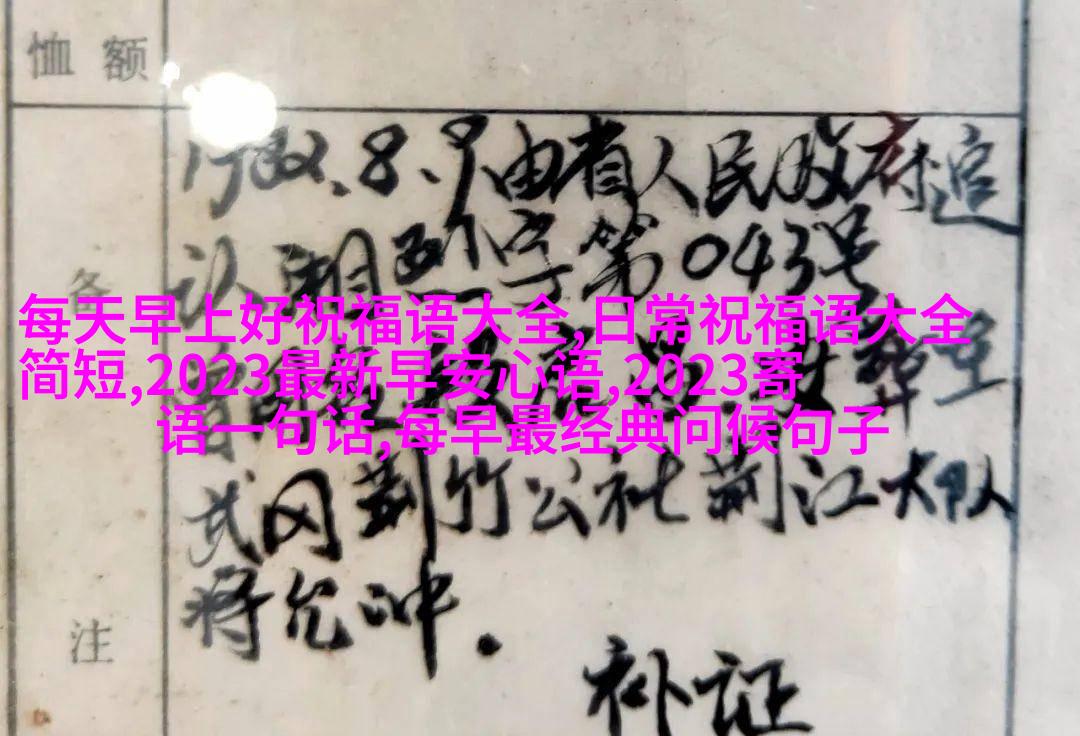 恤额
1982.8.9由省人民政府追
认,湘烈字第043号
备
每天早上好祝福语大全,日常祝福语大全
简短,2023最新早安心语,2023寄
语一句话,每早最经典问候句子
武冈荆竹公社荆江大队
蒋允冲.
注
补证